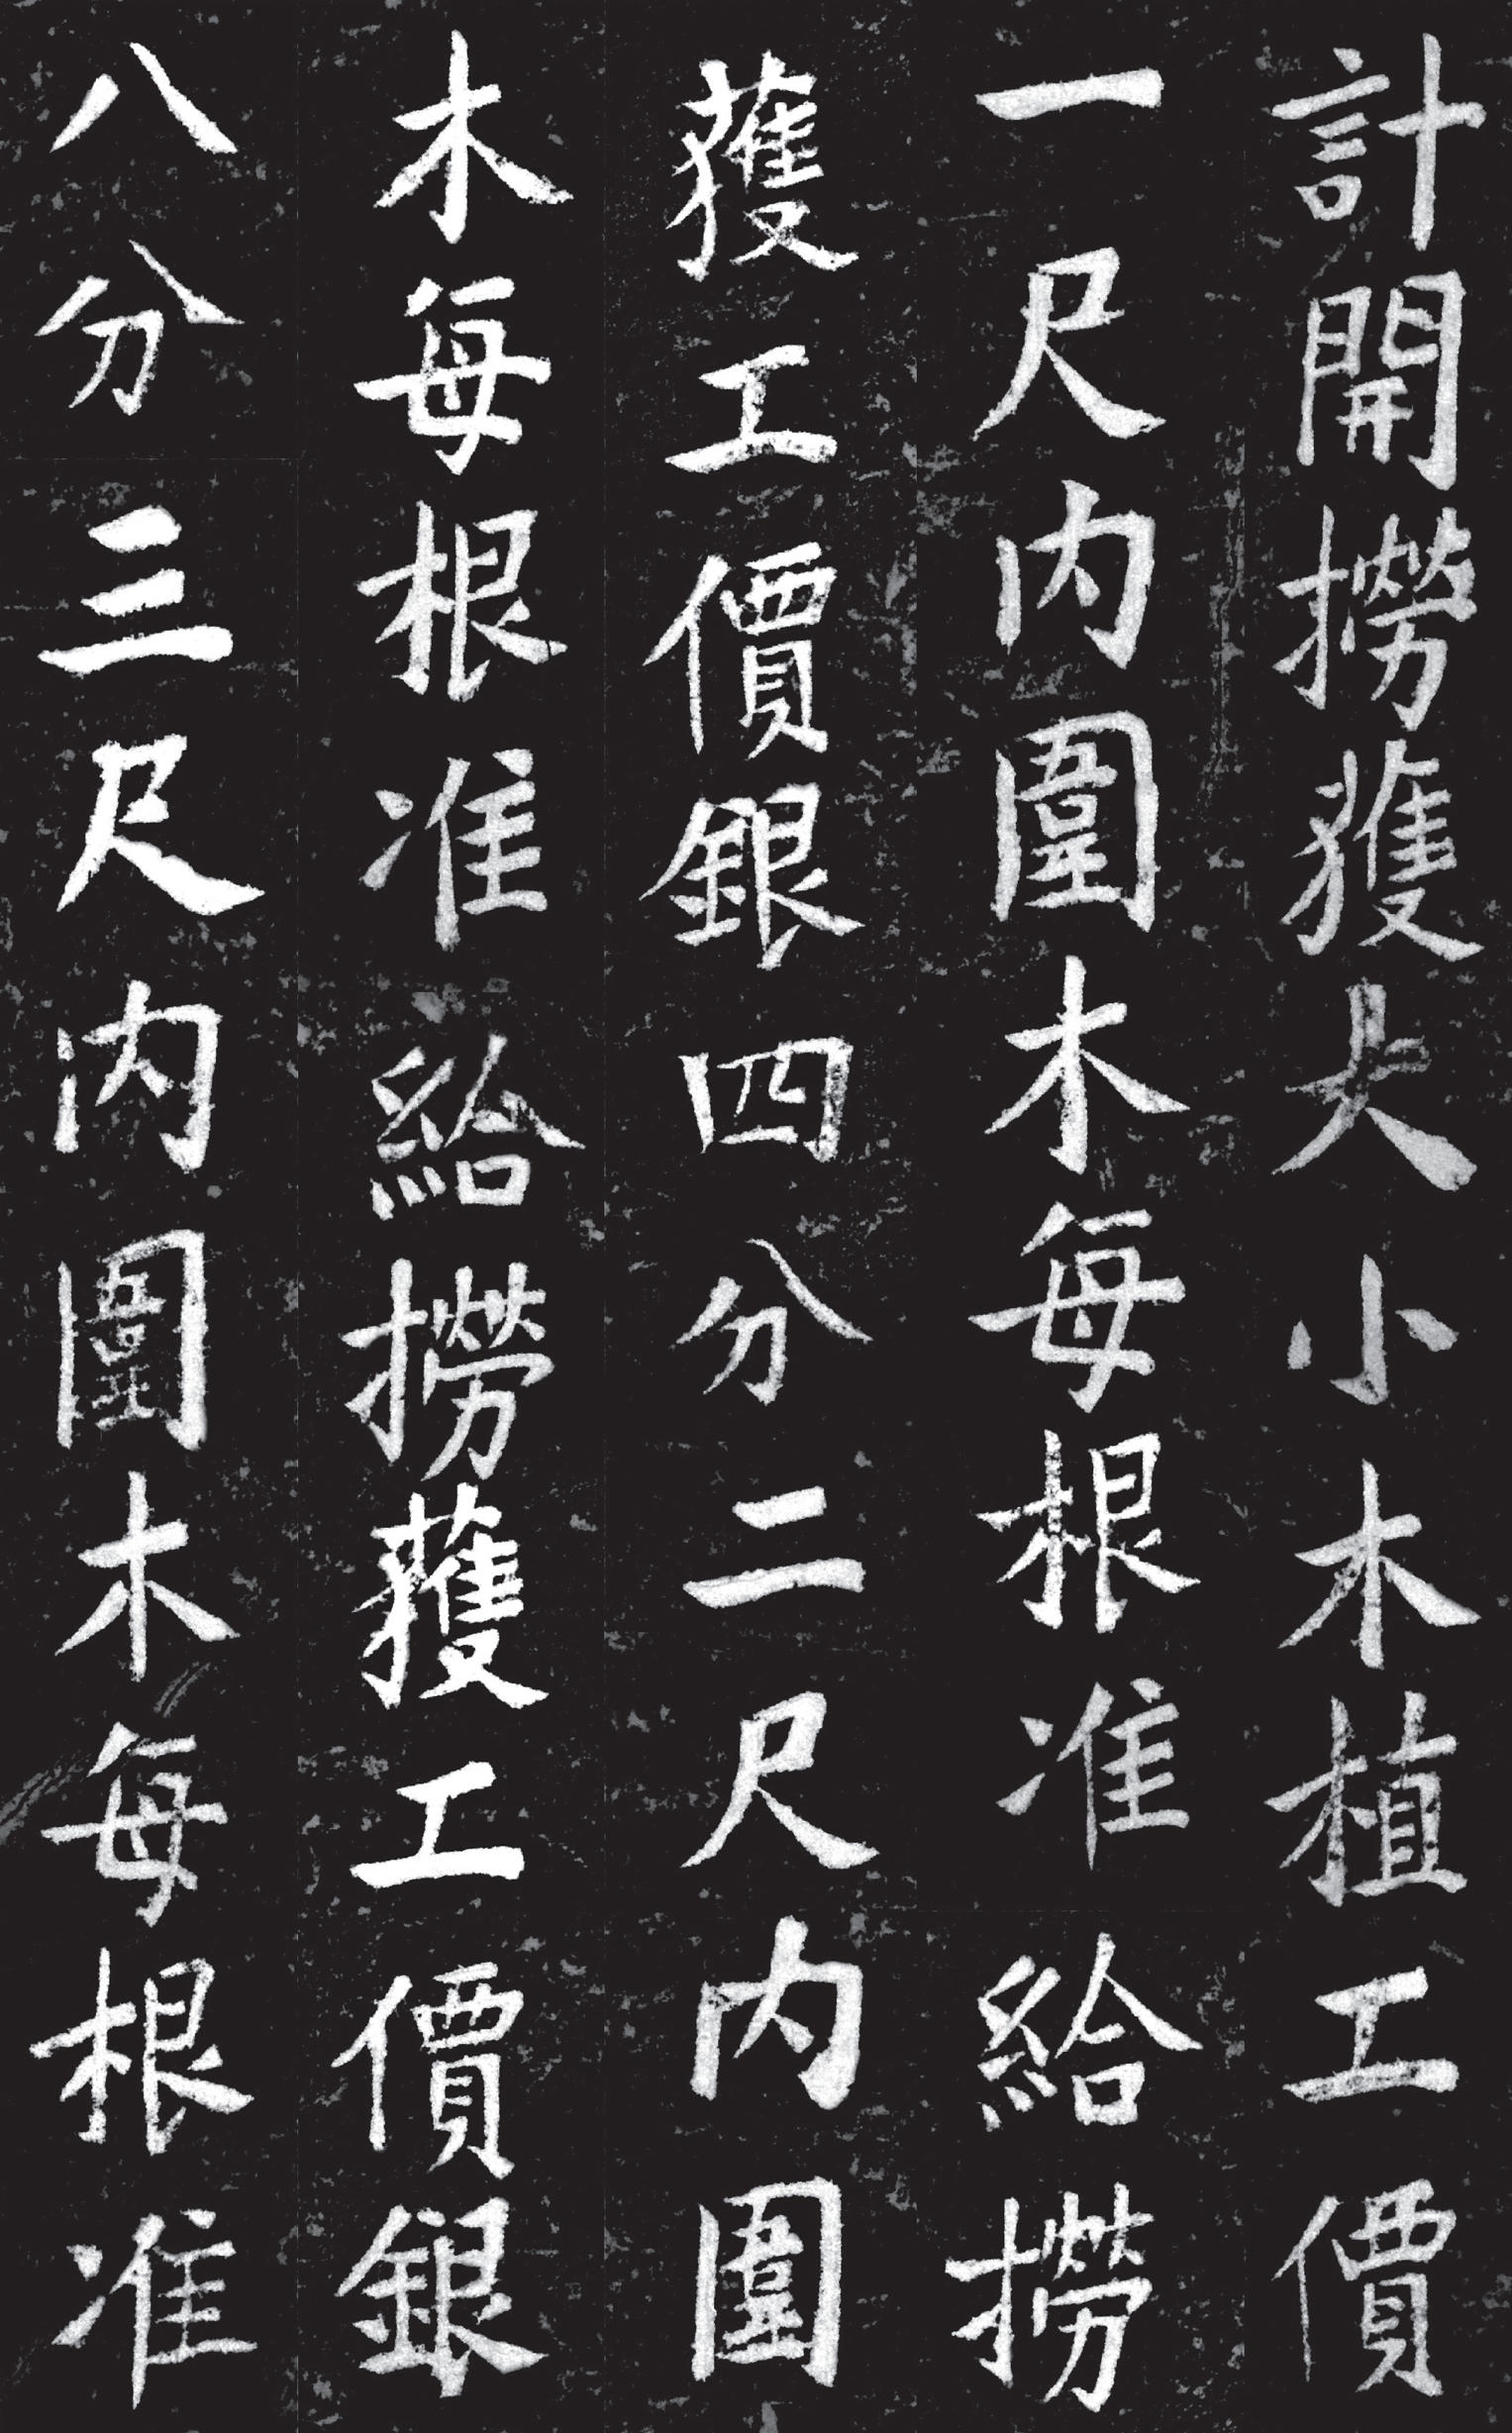 計開撈獲大小木植工價
一尺内圍木每根准給撈
獲工價銀四分二尺内圍
木每根准給撈獲工價銀
八分三尺内圍木每根准